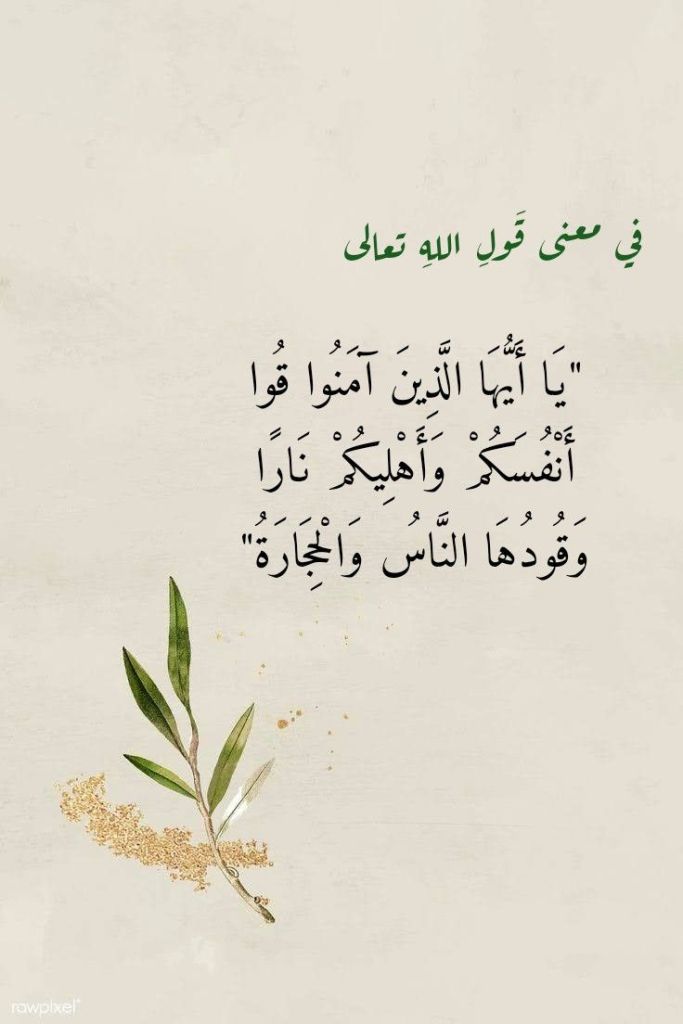 في معنى قَولِ اللهِ تعالى
"يَا أَيُّهَا الَّذِينَ آمَنُوا قُوا
أَنْفُسَكُمْ وَأَهْلِيكُمْ نَارًا
وَقُودُهَا النَّاسُ وَالْحِجَارَةُ"
rawpixel